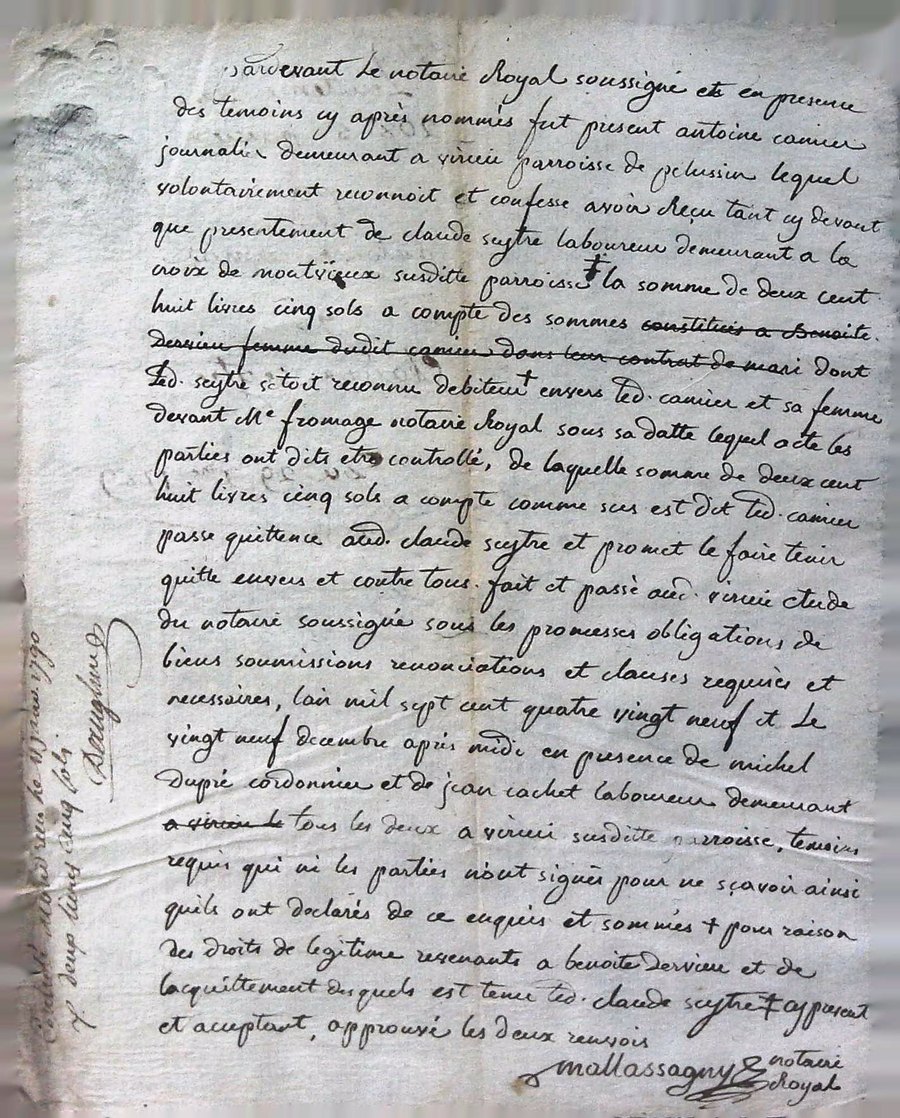 pardevant Le notaire Royal soussigné et en presence
des temoins cy après nommés fut present antoine camier
journalier demeurant a virieu parroisse de pelussin lequel
volontairement reconnoit et confesse avoir Reçu tant cy devant
que presentement de claude scytre laboureur demeurant a la
croix de montvieux susditte parroisse ‡ la somme de deux cent
huit livres cinq sols a compte des sommes constitués a Benoite
Dervieu femme dudit camier dans leur contrat de mari dont
Led. scytre setoit reconnu debiteur + envers led. camier et sa femme
devant Me fromage notaire Royal sous sa datte lequel acte les
parties ont dits etre controllé, de laquelle somme de deux cent
huit livres cinq sols a compte comme sus est dit led. camier
passe quittence aud. claude scytre et promet le faire tenir
quitte envers et contre tous. fait et passé aud. virieu etude
du notaire soussigné sous les promesses obligations de
biens soumissions renonciations et clauses requises et
necessaires, lan mil sept cent quatre vingt neuf et Le
vingt neuf decembre après midi en presence de michel
Dupré cordonnier et de jean cachet laboureur demeurant
a virieu le tous les deux a virieu susditte parroisse, temoins
requis qui ni les parties n'ont signés pour ne sçavoir ainsi
quils ont declarés de ce enquis et sommés + pour raison
des droits de legitime revenants a benoite Dervieu et de
lacquittement desquels est tenu led. claude scytre ‡ cy present
et acceptant, approuvé les deux renvois
mallassagny notaire
Royal
1790
deux livres cinq sols.